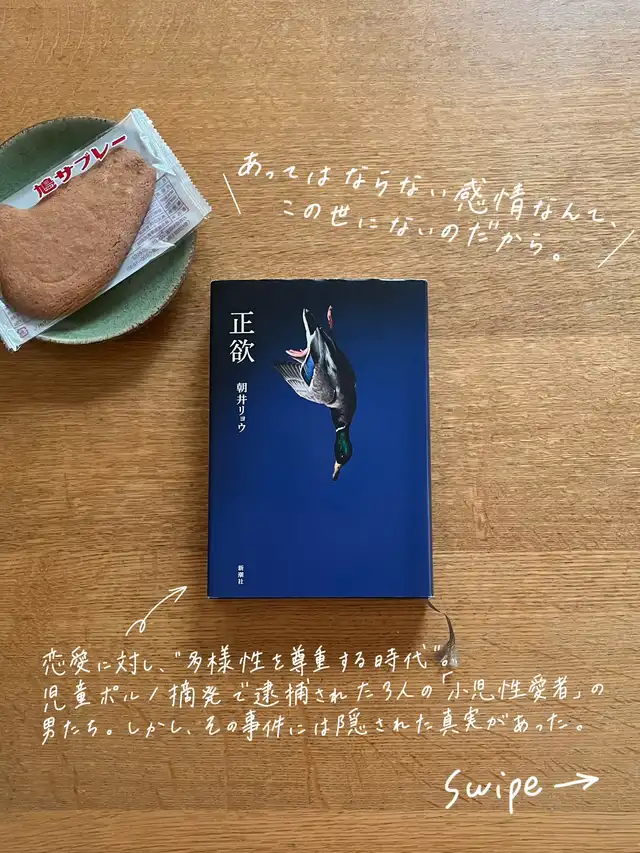 鳩サブレー
あってはならない感情なんて、
この世にないのだから。
正欲
朝井リョウ
新潮社
恋愛に対し、"多様性を尊重する時代"。
児童ポルノ摘発で逮捕された3人の「小児性愛者」の
男たち。しかし、その事件には隠された真実があった。
swipe→